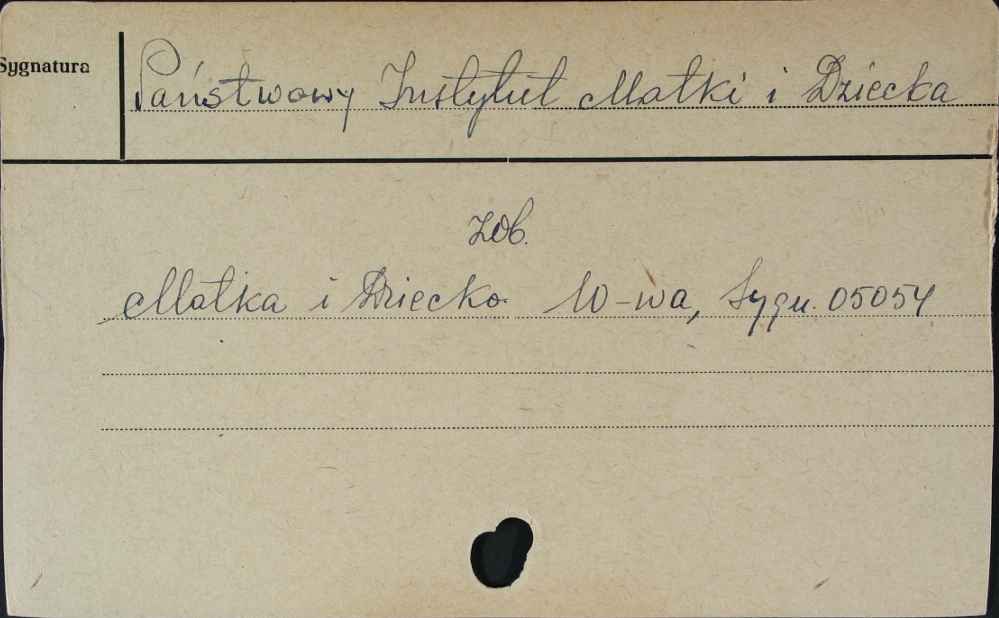 Sygnatura
Państwowy Instytut Matki i Dziecka
zob.
Matka i Dziecko W-wa, Sygn. 05054